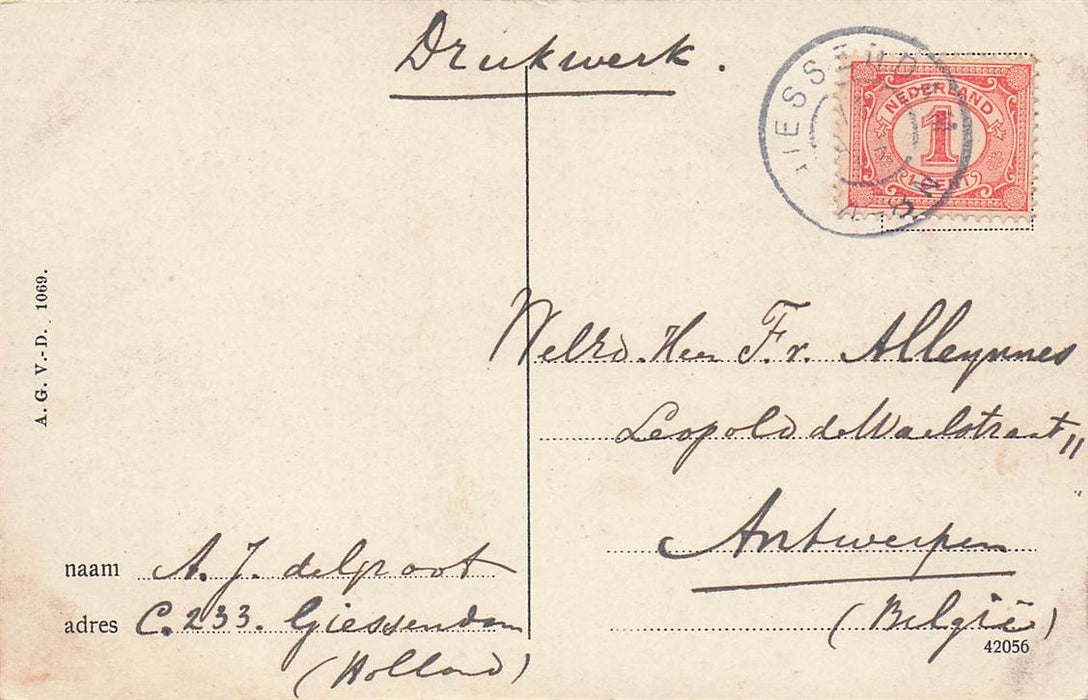 Drukwerk.
NEDERLAND
1
CENT
A. G. V.-D. 1069.
Fr. Alleynnes
Leopold de Waelstraat 11
Antwerpen
(België)
42056
naam A. J. de Groot
adres C. 233. Giessendam
(Holland)